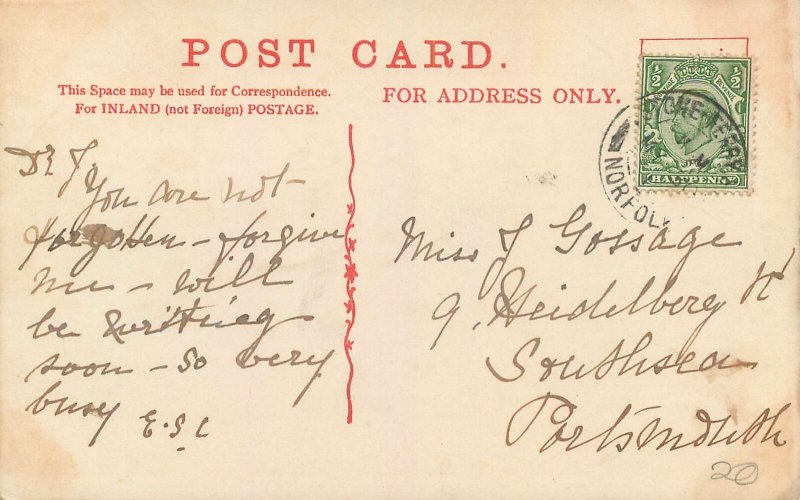 POST CARD.
This Space may be used for Correspondence.
For INLAND (not Foreign) POSTAGE.
FOR ADDRESS ONLY.
½ ½
HALFPENNY
STOKE FERRY
NORFOLK
Dr J
You are not
forgotten – forgive
me – will
be writing
soon – so very
busy
E.S.C
Miss J Gossage
9, Heidelberg Rd
Southsea
Portsmouth
20